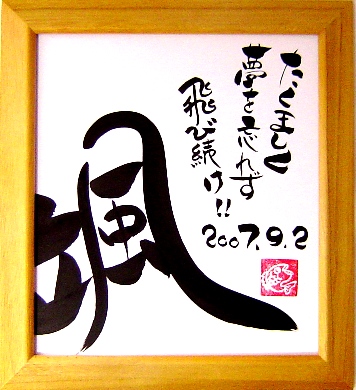 たくましく
夢を忘れず
飛び続け!!
2007.9.2
颯